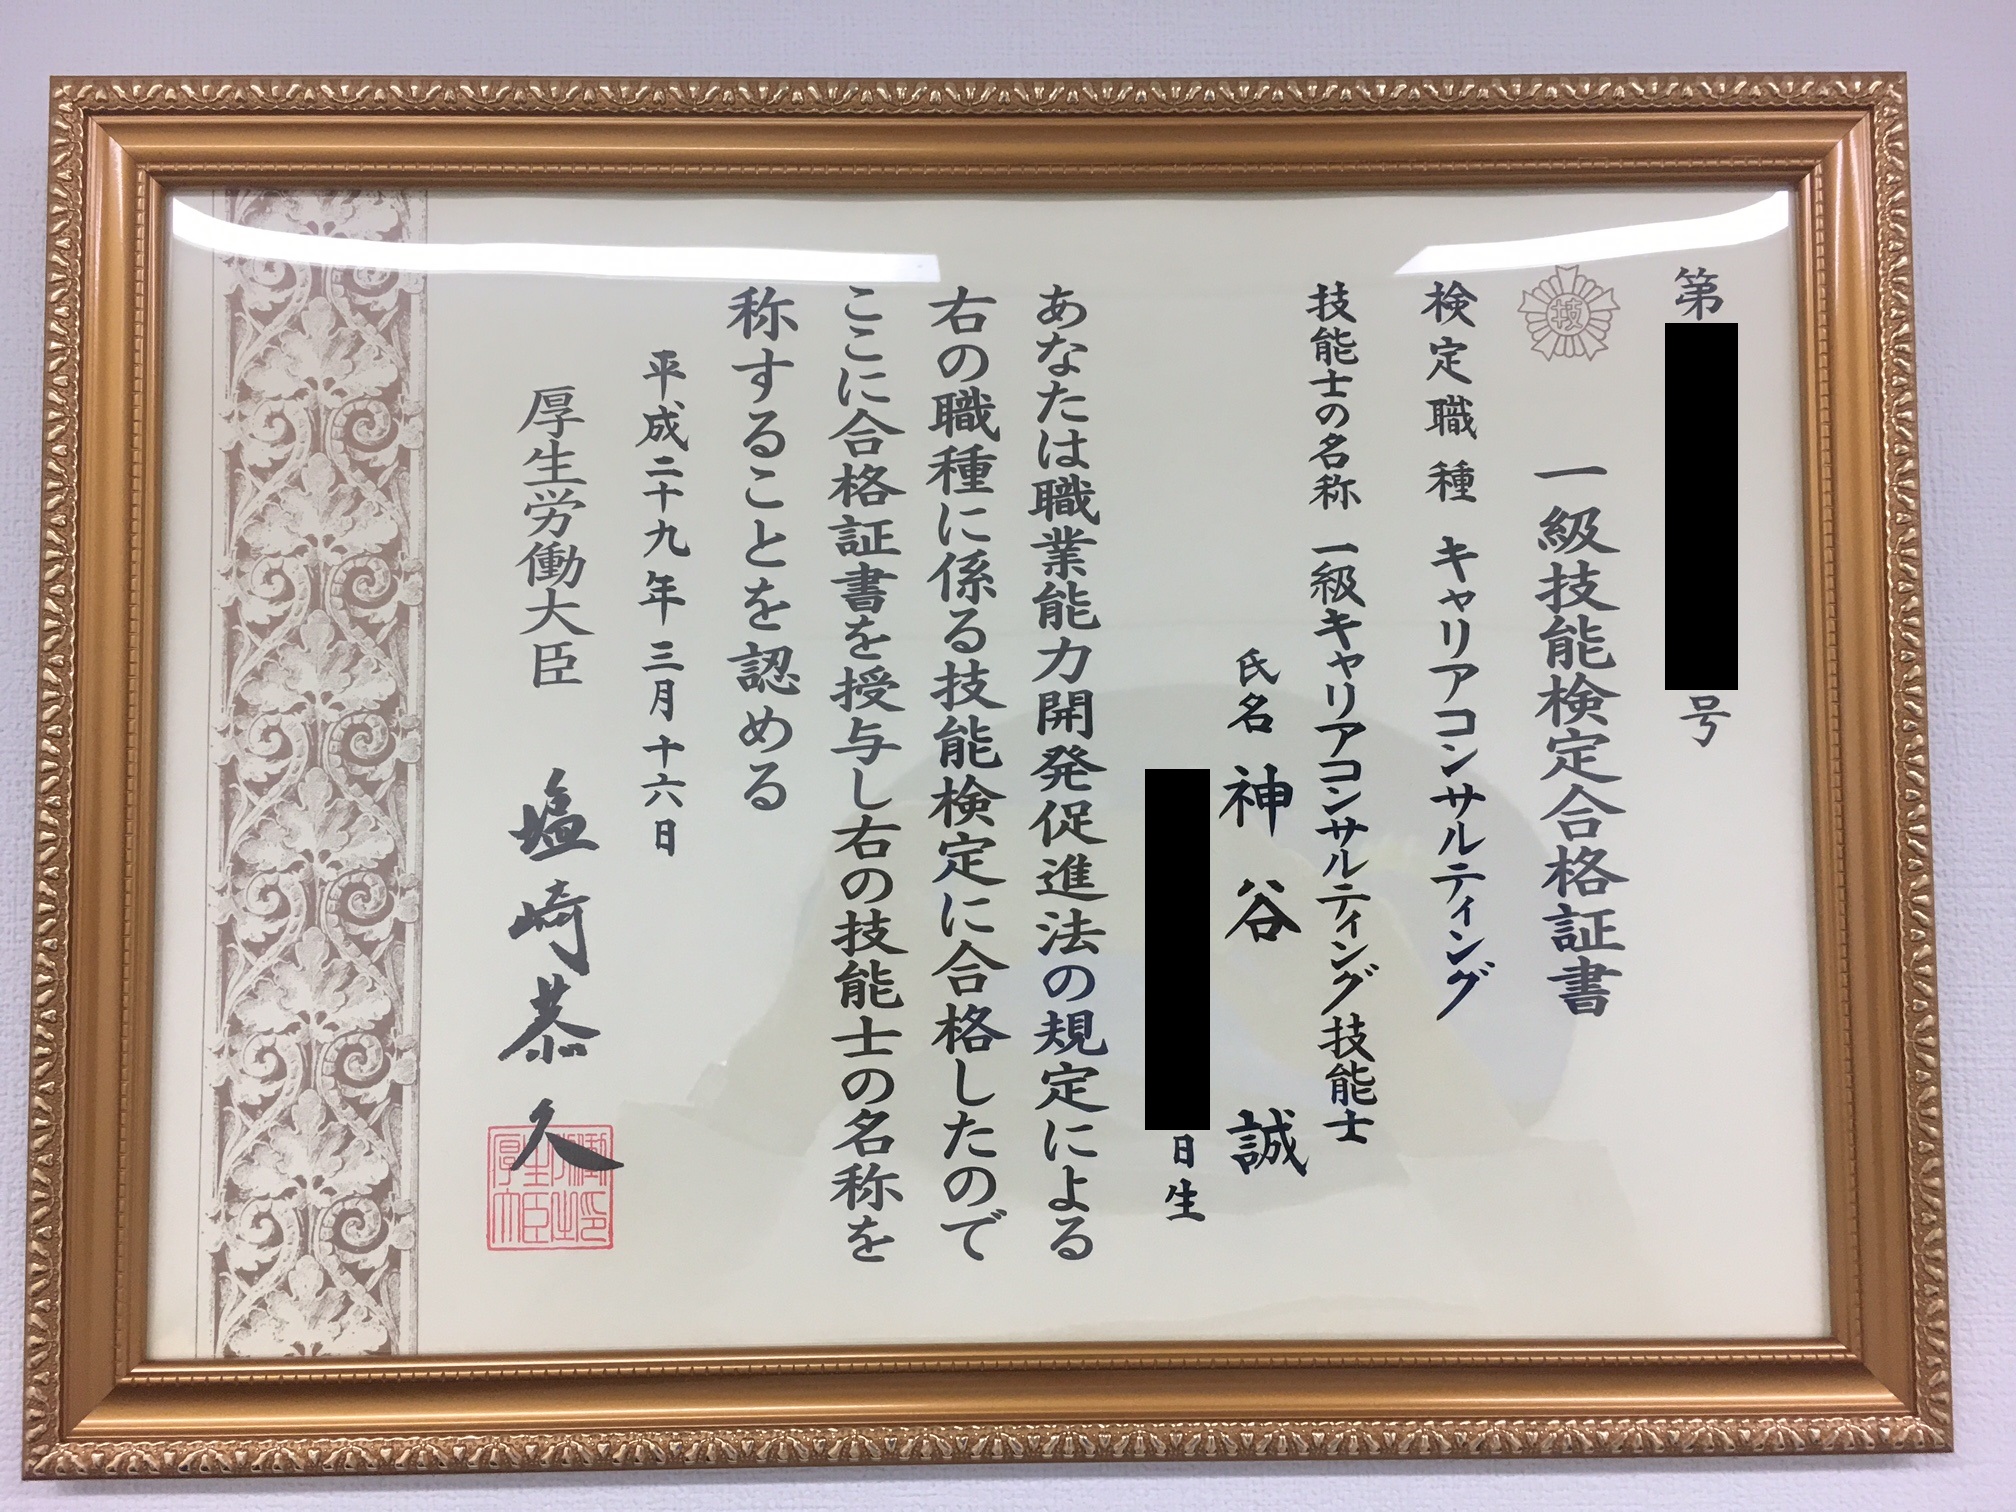 第 号
技
一級技能検定合格証書
検定職種 キャリアコンサルティング
技能士の名称 一級キャリアコンサルティング技能士
氏名 神谷 誠
日生
あなたは職業能力開発促進法の規定による
右の職種に係る技能検定に合格したので
ここに合格証書を授与し右の技能士の名称を
称することを認める
平成二十九年三月十六日
厚生労働大臣 塩崎恭久